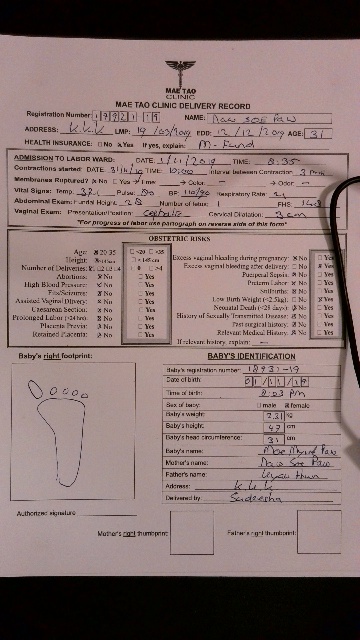 MAE TAO
CLINIC
MAE TAO CLINIC DELIVERY RECORD
Registration Number: NAME: Naw Soe Paw
ADDRESS: K.K.K LMP: EDD: 12/12/2019 AGE: 31
HEALTH INSURANCE: No Yes If yes, explain: M-Fund
ADMISSION TO LABOR WARD: DATE: TIME: 8:35
Contractions started: DATE: TIME: 10:00 Interval between Contraction:
Membranes Ruptured? No Yes Time: Color: Odor:
Vital Signs: Temp. Pulse: BP: 110/90 Respiratory Rate:
Abdominal Exam: Fundal Height: 28 Number of fetus: 1 FHS: 148
Vaginal Exam: Presentation/Position: Cephalic Cervical Dilatation: 3cm
*For progress of labor use partograph on reverse side of form*
OBSTETRIC RISKS
Age: 20-35 <20 >35
Height: <145 cm
Number of Deliveries: 1 2 3 4 0 >4
Abortions: No Yes
High Blood Pressure: No Yes
Fits/Seizures: No Yes
Assisted Vaginal Delivery: No Yes
Caesarean Section: No Yes
Prolonged Labor (>24 hrs): No Yes
Placenta Previa: No Yes
Retained Placenta: No Yes
Excess vaginal bleeding during pregnancy: No Yes
Excess vaginal bleeding after delivery: No Yes
Puerperal Sepsis: No Yes
Preterm Labor: No Yes
Stillbirths: No Yes
Low Birth Weight (<2.5kg): No Yes
Neonatal Death (<29 days): No Yes
History of Sexually Transmitted Disease: No Yes
Past surgical history: No Yes
Relevant Medical History: No Yes
If relevant history, explain:
Baby's right footprint:
BABY'S IDENTIFICATION
Baby's registration number: 18931-19
Date of birth: 01 11 19
Time of birth: 8:03 pm
Sex of baby: male female
Baby's weight: 2.31 kg
Baby's height: 47 cm
Baby's head circumference: 31 cm
Baby's name: Paw
Mother's name: Naw Soe Paw
Father's name:
Address: K K K
Delivered by:
Authorized signature
Mother's right thumbprint: Father's right thumbprint: